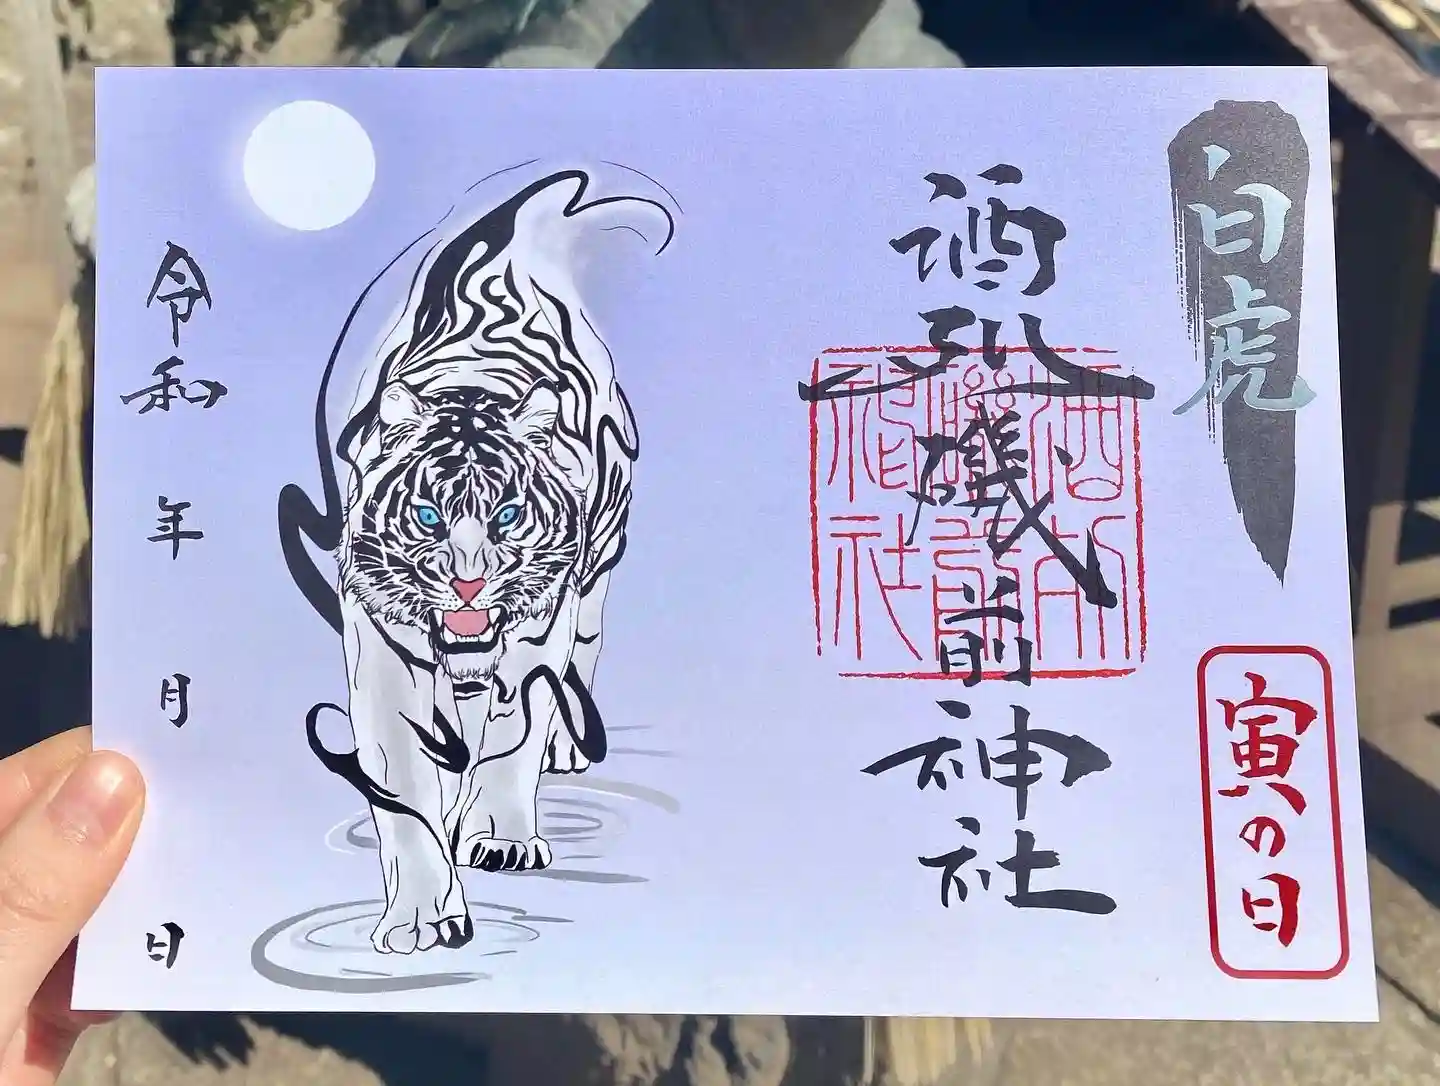 白虎
寅の日
酒列磯前神社
酒列
磯前
神社
令和 年 月 日